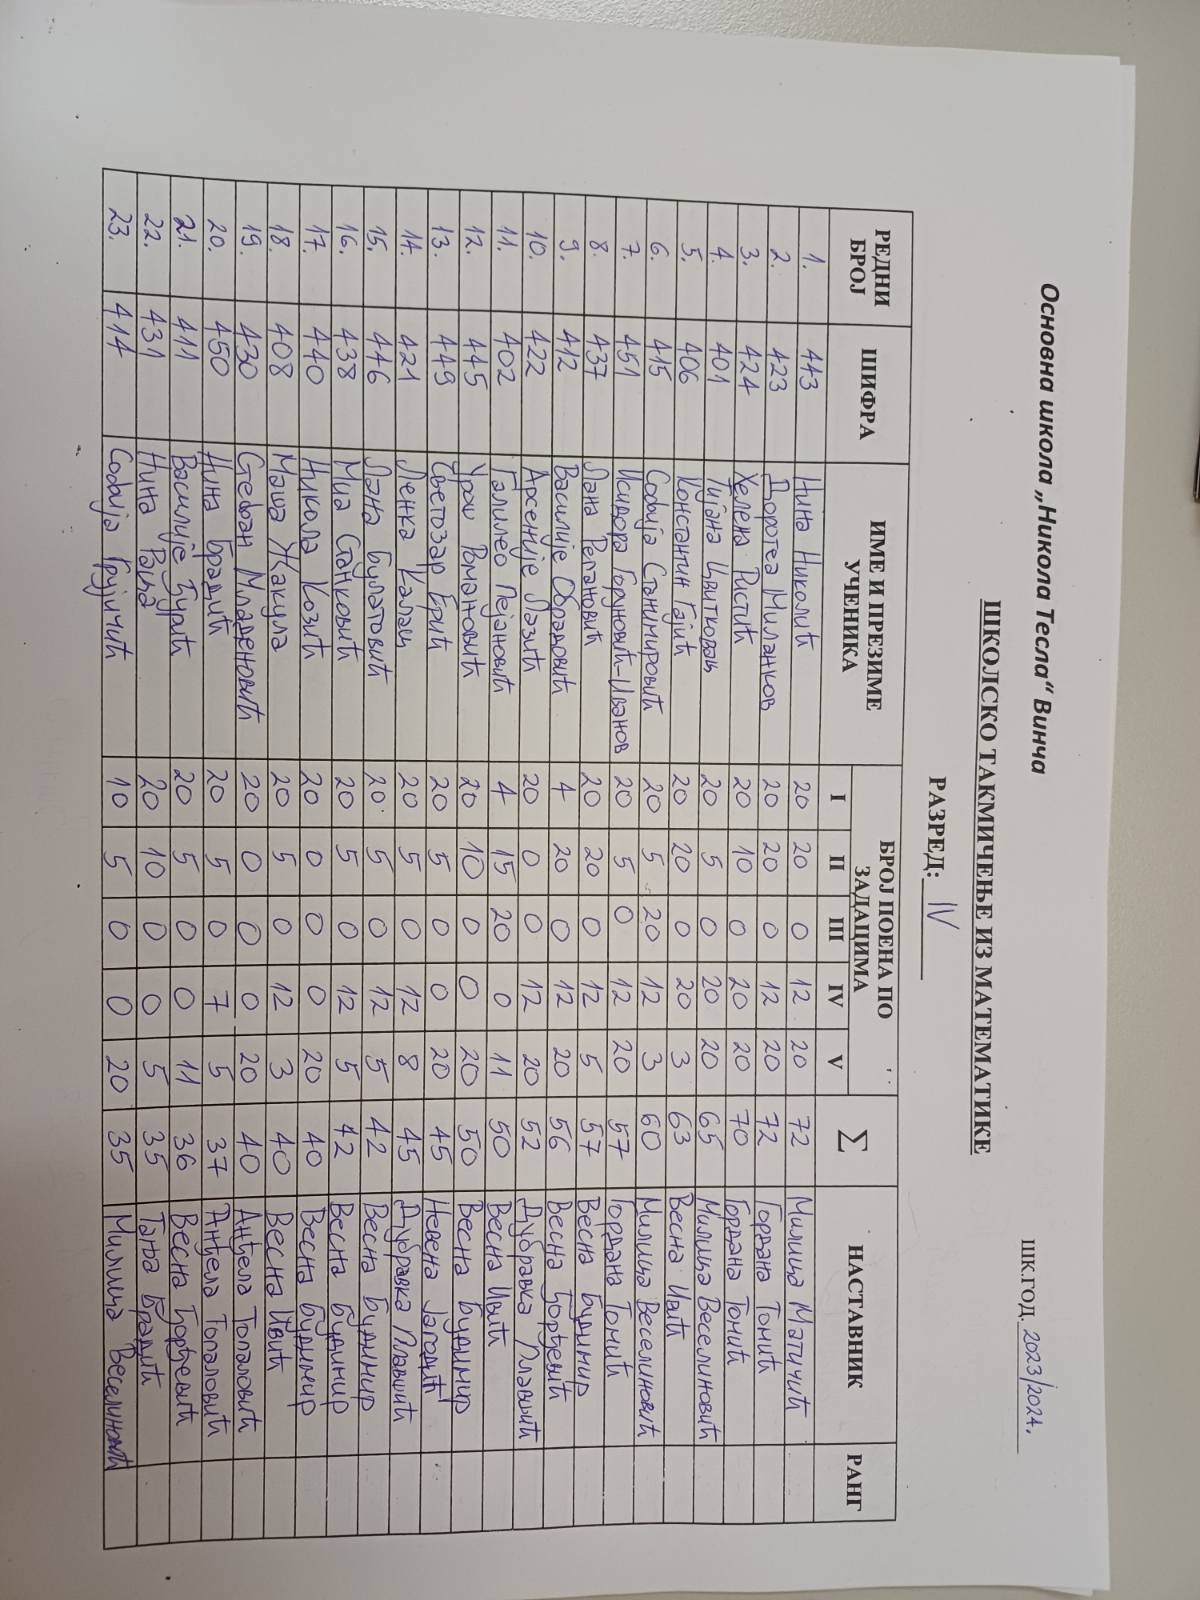 Основна школа „Никола Тесла“ Винча
ШК.ГОД. 2023/2024.
ШКОЛСКО ТАКМИЧЕЊЕ ИЗ МАТЕМАТИКЕ
РАЗРЕД: IV
РЕДНИ БРОЈ ШИФРА ИМЕ И ПРЕЗИМЕ УЧЕНИКА БРОЈ ПОЕНА ПО ЗАДАЦИМА Σ НАСТАВНИК РАНГ
I II III IV V
1. 443 Нина Николић 20 20 0 12 20 72 Милица Матичић
2. 423 Доротеа Миланков 20 20 0 12 20 72 Гордана Томић
3. 424 Хелена Ристић 20 10 0 20 20 70 Гордана Томић
4. 401 Тијана Цвитковац 20 5 0 20 20 65 Милица Веселиновић
5. 406 Константин Гајић 20 20 0 20 3 63 Весна Ивић
6. 415 Софија Станимировић 20 5 20 12 3 60 Милица Веселиновић
7. 451 Исидора Груновић-Иванов 20 5 0 12 20 57 Гордана Томић
8. 437 Лана Релановић 20 20 0 12 5 57 Весна Будимир
9. 412 Василије Обрадовић 4 20 0 12 20 56 Весна Ђорђевић
10. 422 Арсеније Лазић 20 0 0 12 20 52 Дубравка Плавшић
11. 402 Галилео Пејановић 4 15 20 0 11 50 Весна Ивић
12. 445 Урош Романовић 20 10 0 0 20 50 Весна Будимир
13. 449 Светозар Ерић 20 5 0 0 20 45 Невена Јагодић
14. 421 Ленка Калац 20 5 0 12 8 45 Дубравка Плавшић
15. 446 Лана Булатовић 20 5 0 12 5 42 Весна Будимир
16. 438 Миа Станковић 20 5 0 12 5 42 Весна Будимир
17. 440 Никола Козић 20 0 0 0 20 40 Весна Будимир
18. 408 Маша Жакула 20 5 0 12 3 40 Весна Ивић
19. 430 Стефан Младеновић 20 0 0 0 20 40 Анђела Топаловић
20. 450 Нина Брадић 20 5 0 7 5 37 Анђела Топаловић
21. 411 Василије Ђурић 20 5 0 0 11 36 Весна Ђорђевић
22. 431 Нина 20 10 0 0 5 35 Тања Брадић
23. 414 Софија Грујичић 10 5 0 0 20 35 Милица Веселиновић